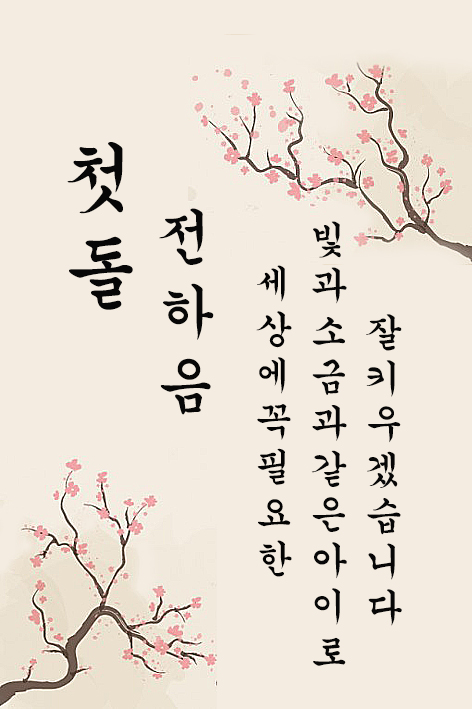 첫돌
전하음
세상에꼭필요한
빛과소금과같은아이로
잘키우겠습니다